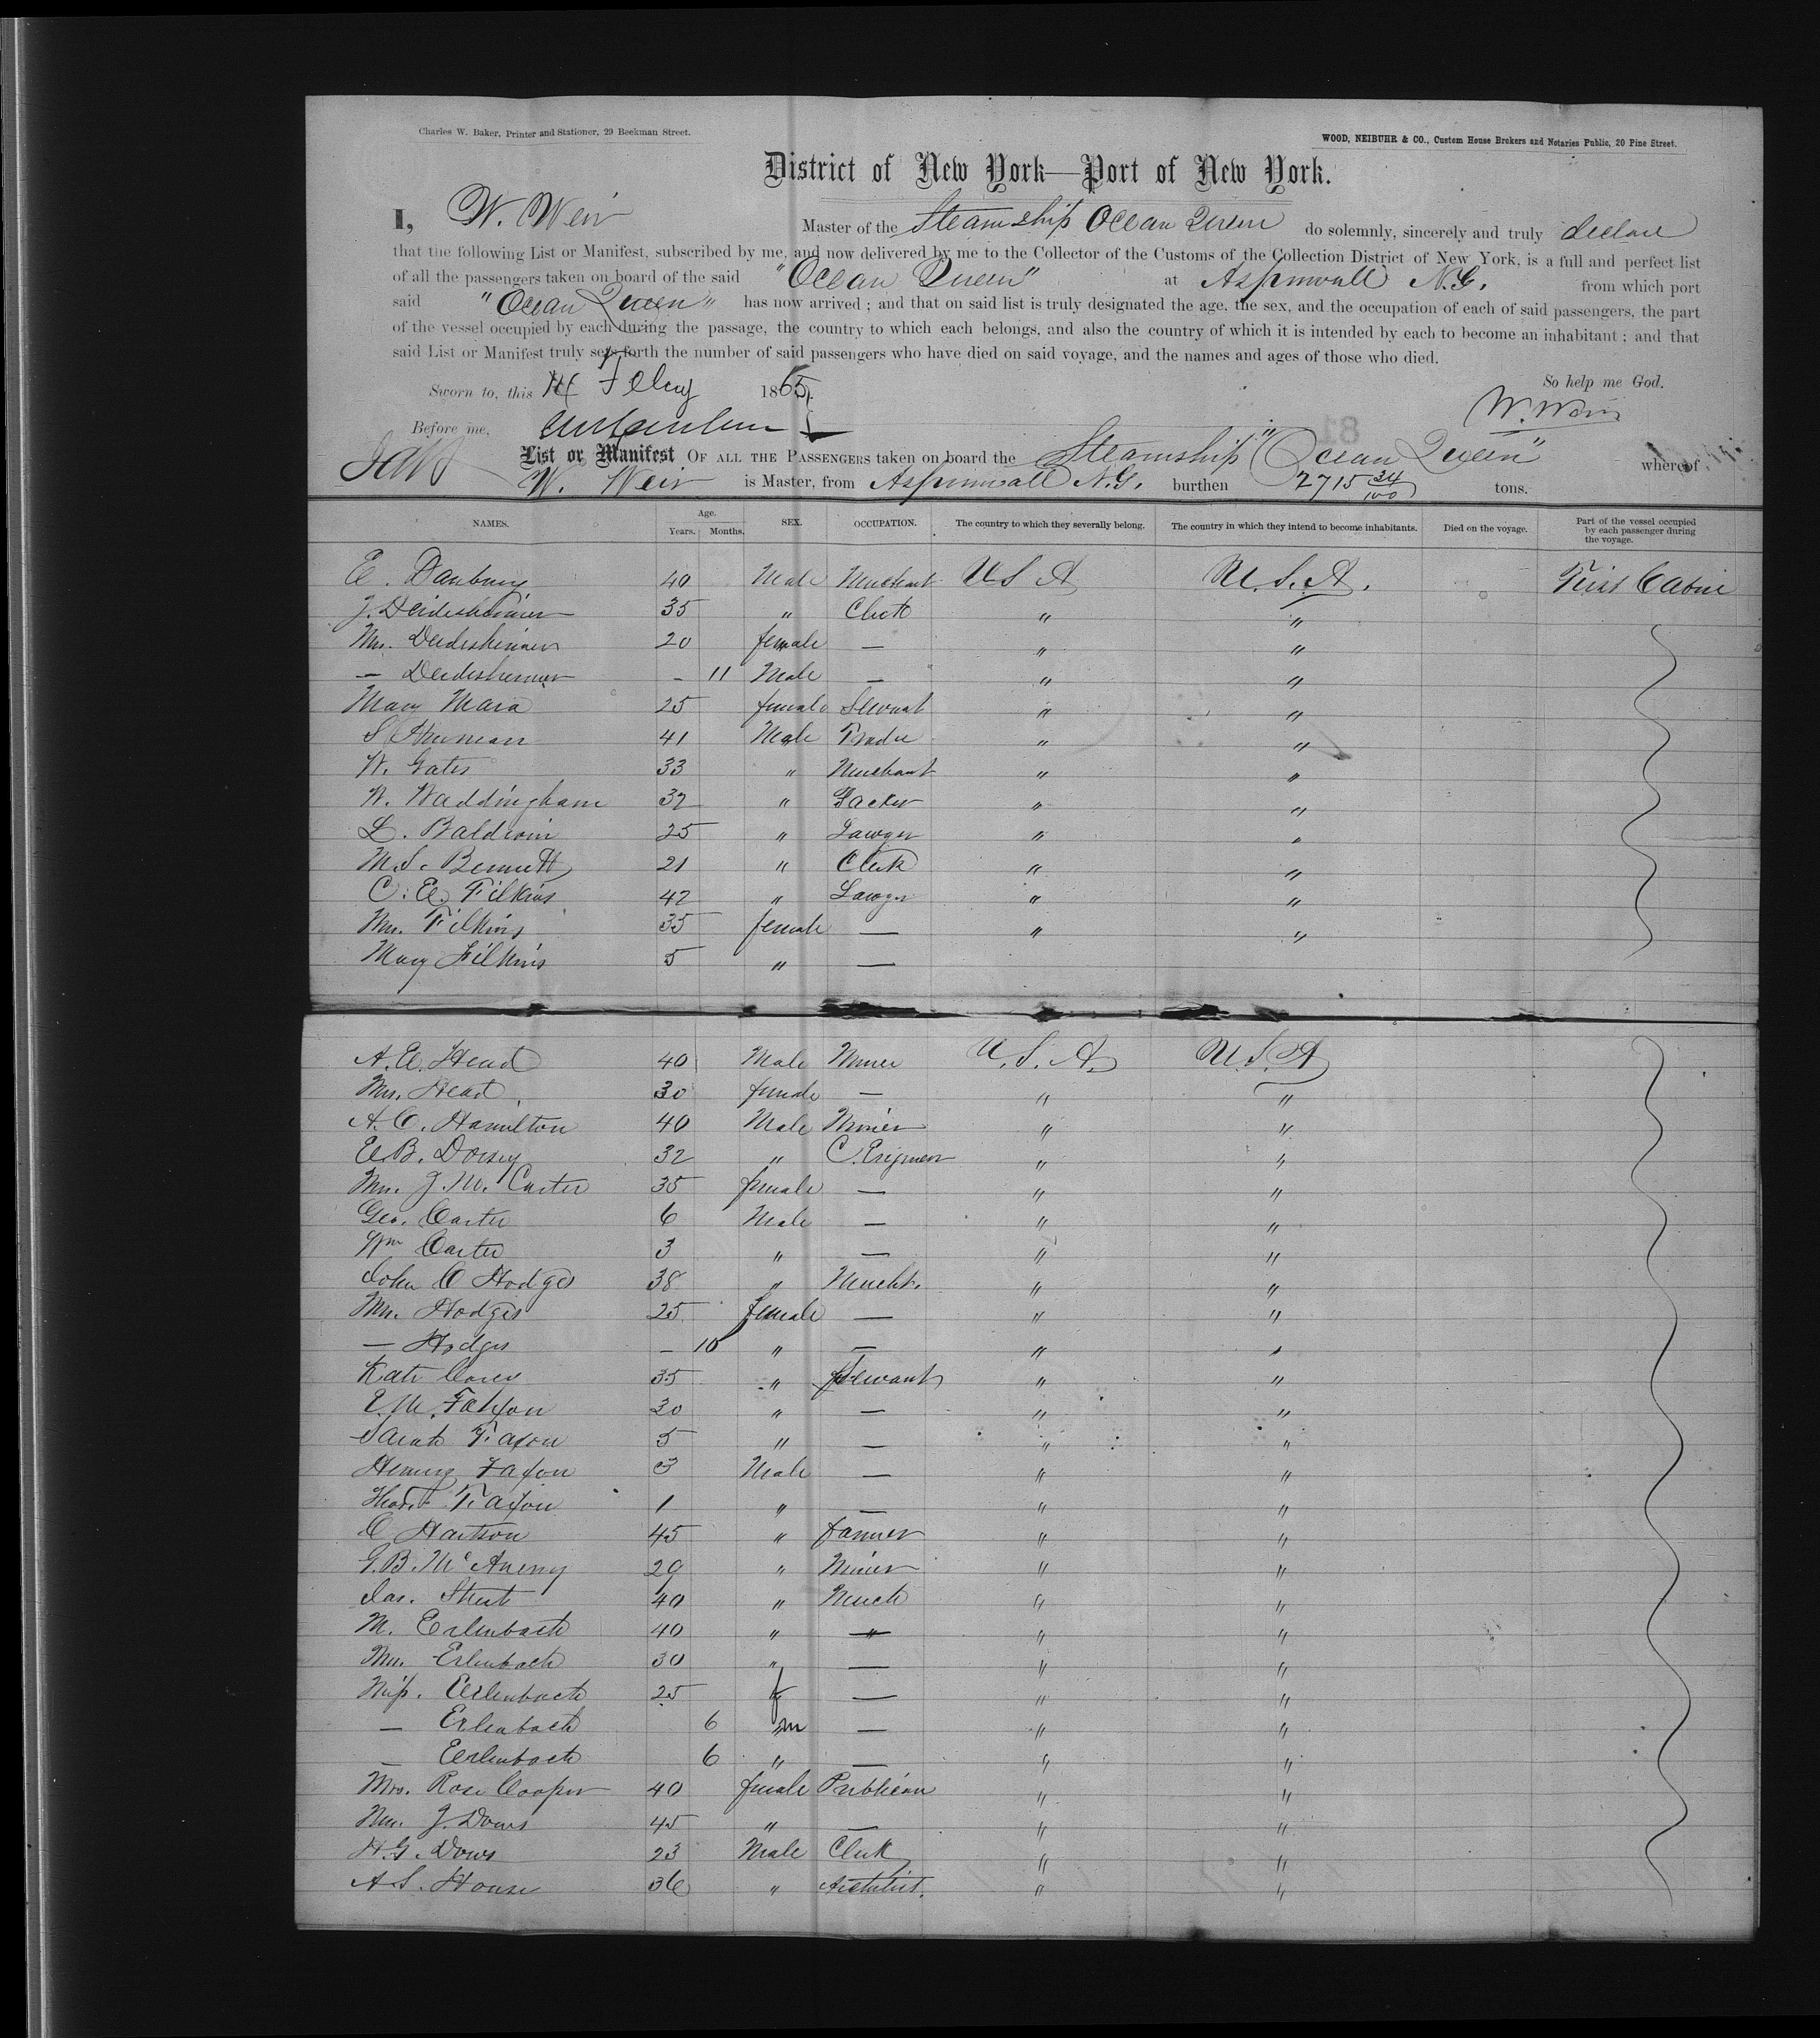 Charles W. Baker, Printer and Stationer, 29 Beekman Street.
WOOD, NEIBUHR & CO., Custom House Brokers and Notaries Public, 20 Pine Street.
District of New York—Port of New York.
I, W. Weir Master of the Steamship Ocean Queen do solemnly, sincerely and truly declare
that the following List or Manifest, subscribed by me, and now delivered by me to the Collector of the Customs of the Collection District of New York, is a full and perfect list
of all the passengers taken on board of the said "Ocean Queen" at Aspinwall N.G. from which port
said "Ocean Queen" has now arrived ; and that on said list is truly designated the age, the sex, and the occupation of each of said passengers, the part
of the vessel occupied by each during the passage, the country to which each belongs, and also the country of which it is intended by each to become an inhabitant ; and that
said List or Manifest truly sets forth the number of said passengers who have died on said voyage, and the names and ages of those who died.
So help me God.
Sworn to, this 14 Feby 1865.
W. Weir
Before me,
List or Manifest OF ALL THE PASSENGERS taken on board the Steamship "Ocean Queen" whereof
W. Weir is Master, from Aspinwall N.G. burthen 2715 34/100 tons.
NAMES. Age. Years. Months. SEX. OCCUPATION. The country to which they severally belong. The country in which they intend to become inhabitants. Died on the voyage. Part of the vessel occupied by each passenger during the voyage.
E. Danbury 40 Male Merchant U S A U.S.A. First Cabin
J. Deidesheimer 35 " Clerk " "
Mrs. Deidesheimer 20 female — " "
— Deidesheimer - 11 Male — " "
Mary Mara 25 female Servant " "
S Sherman 41 Male Trader " "
W. Gates 33 " Merchant " "
W. Waddingham 32 " Packer " "
L. Baldwin 25 " Lawyer " "
M.S. Bennett 21 " Clerk " "
C. E. Filkins 42 " Lawyer " "
Mrs. Filkins 35 female — " "
Mary Filkins 5 " —
A. E. Head 40 Male Miner U.S.A. U.S.A
Mrs. Head 30 female — " "
A. C. Hamilton 40 Male Miner " "
E. B. Dorsey 32 " C. Engineer " "
Mrs. J. M. Carter 35 female — " "
Geo. Carter 6 Male — " "
Wm Carter 3 " — " "
John C Hodges 38 " Mercht. " "
Mrs. Hodges 25 female — " "
— Hodges - 10 " — " "
Kate 35 " Servant " "
E. M. Faxon 30 " — " "
Sarah Faxon 5 " — " "
Henry Faxon 3 Male — " "
Faxon 1 " — " "
C Hartson 45 " farmer " "
G. B. McAneny 29 " Miner " "
Jas. Street 40 " Merch " "
M. Erlenbach 40 " " " "
Mrs. Erlenbach 30 " — " "
Miss. Erlenbach 25 f — " "
— Erlenbach 6 m — " "
— Erlenbach 6 " — " "
Mrs. Rose Cooper 40 female Publican " "
Mrs. J. Dows 45 " — " "
H. G. Dows 23 Male Clerk " "
A S. House 36 " Architect. " "